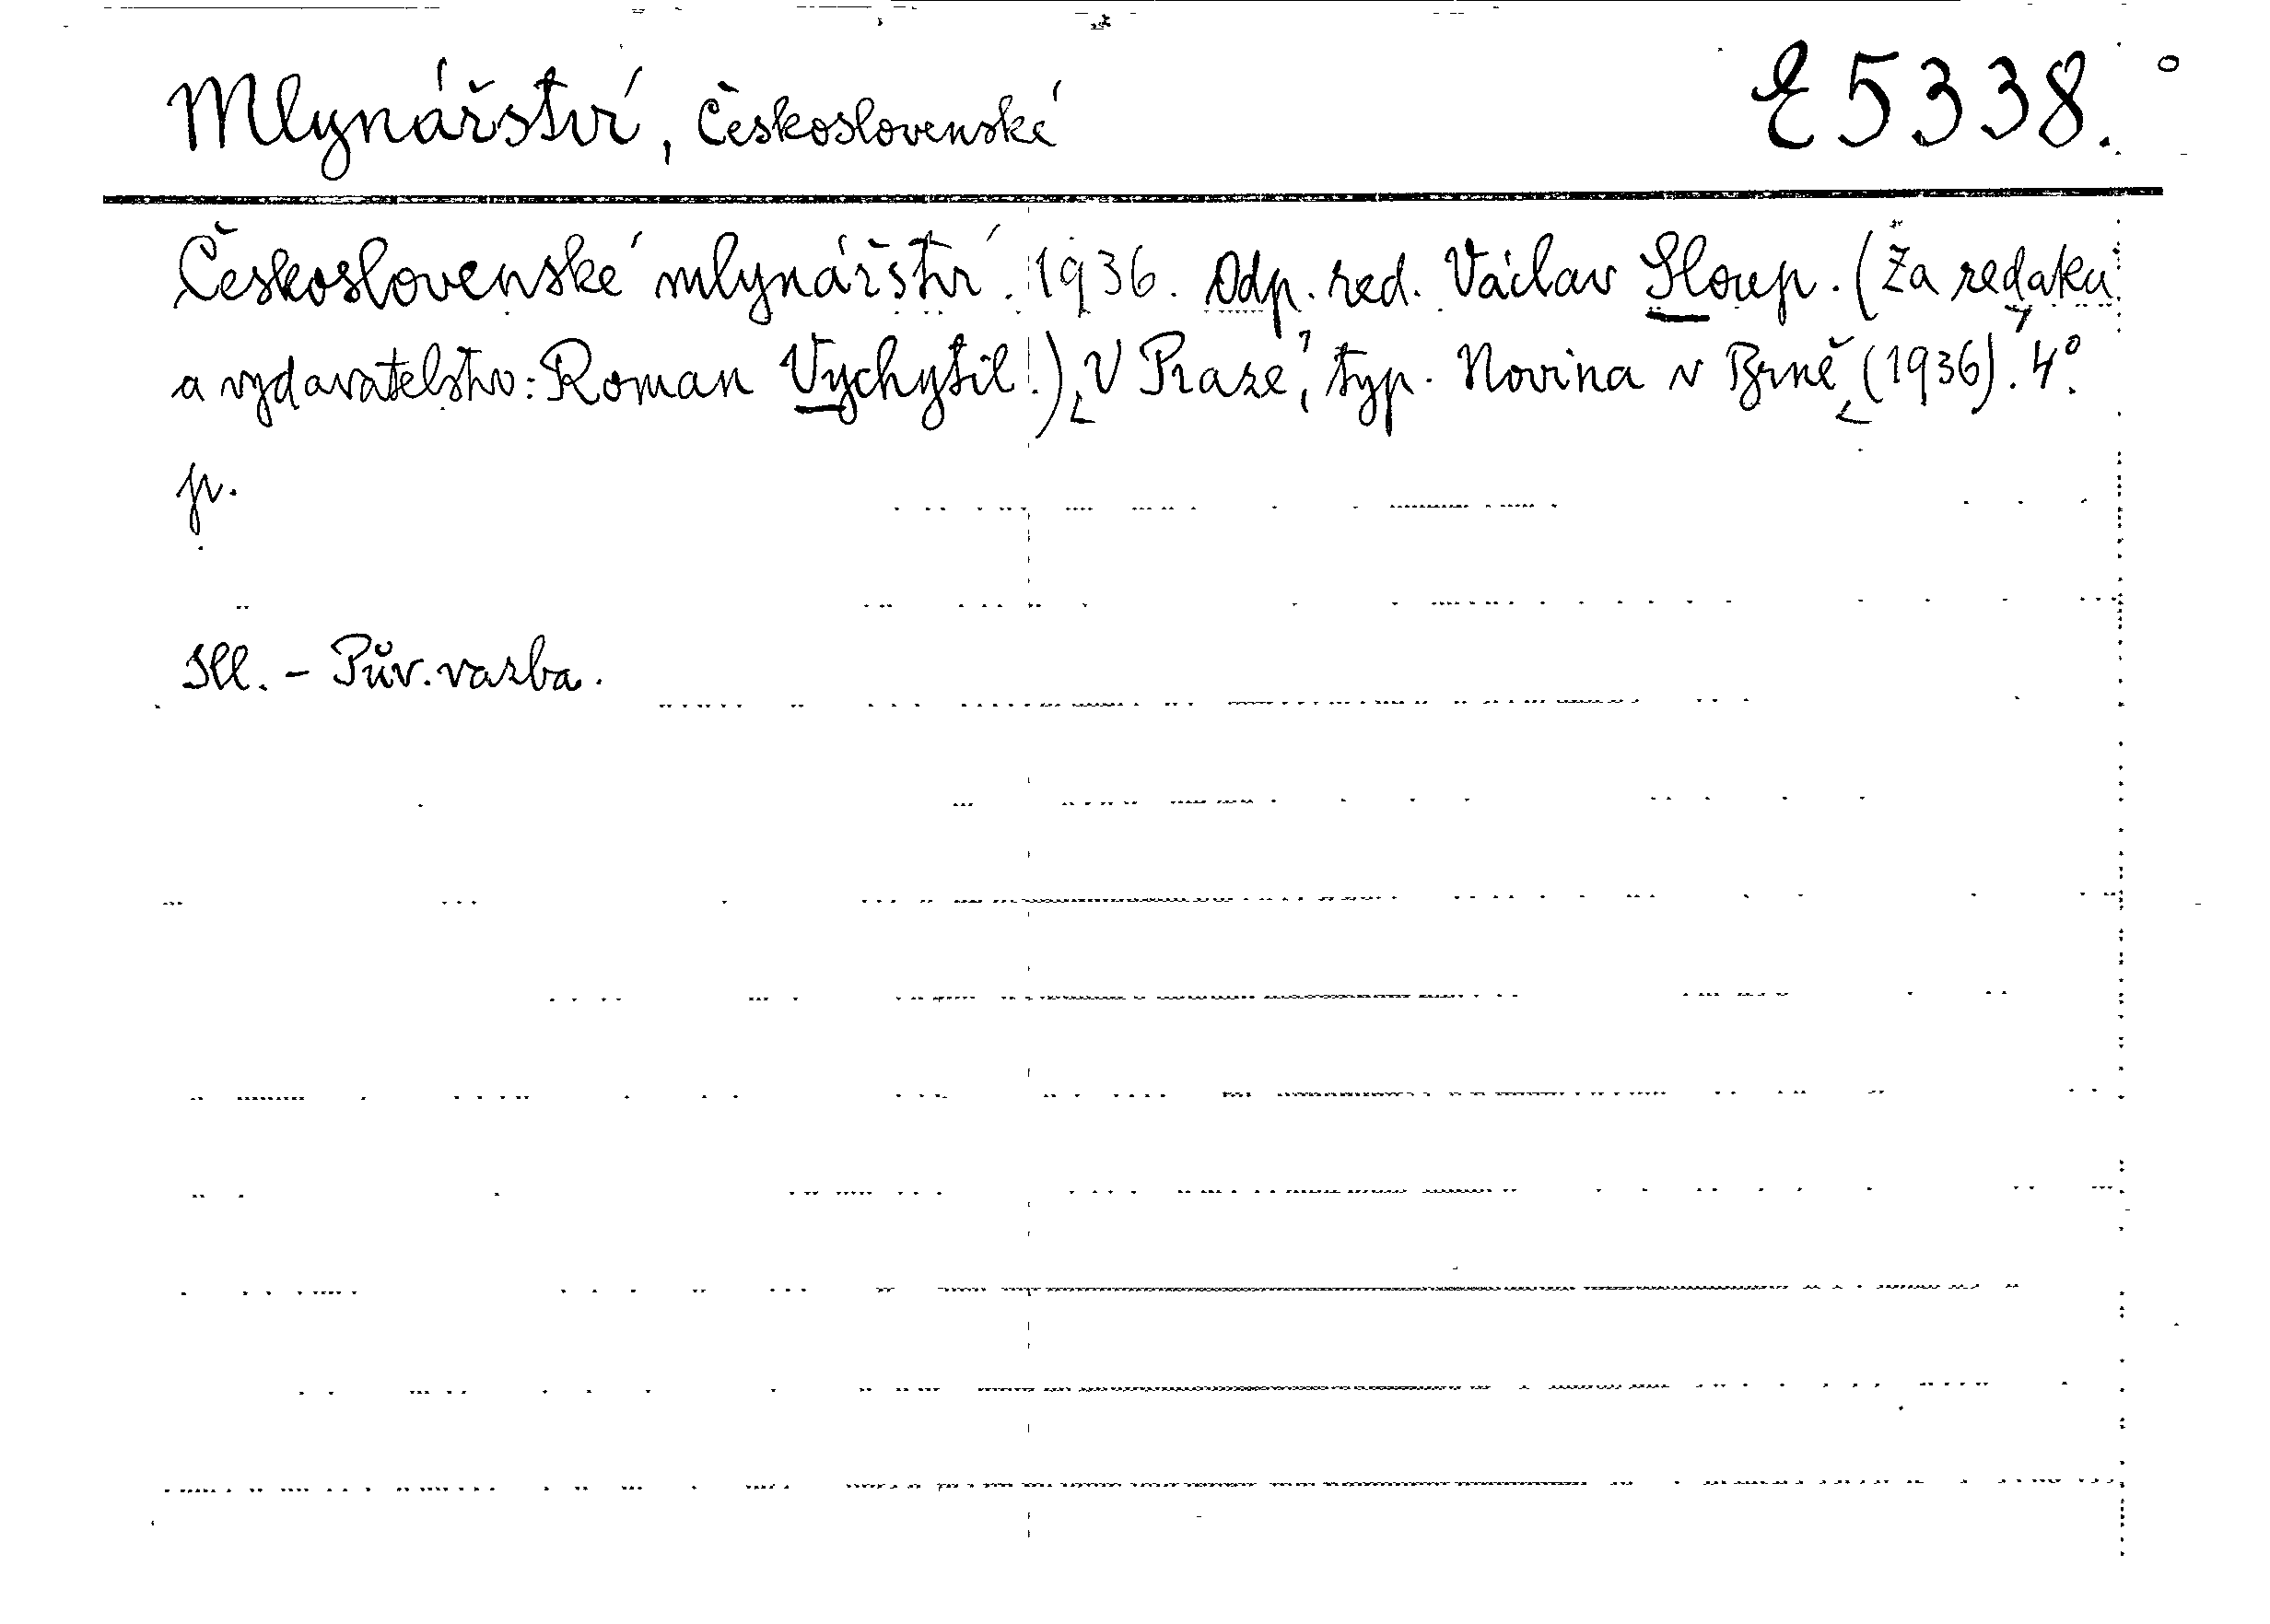 Mlynářství, Československé E 5338.
Československé mlynářství. 1936. Odp. red. Václav Sloup. (Za redakci
a vydavatelstvo: Roman Vychytil.) V Praze, typ. Novina v Brně (1936). 4°.
Ill. – Pův. vazba.